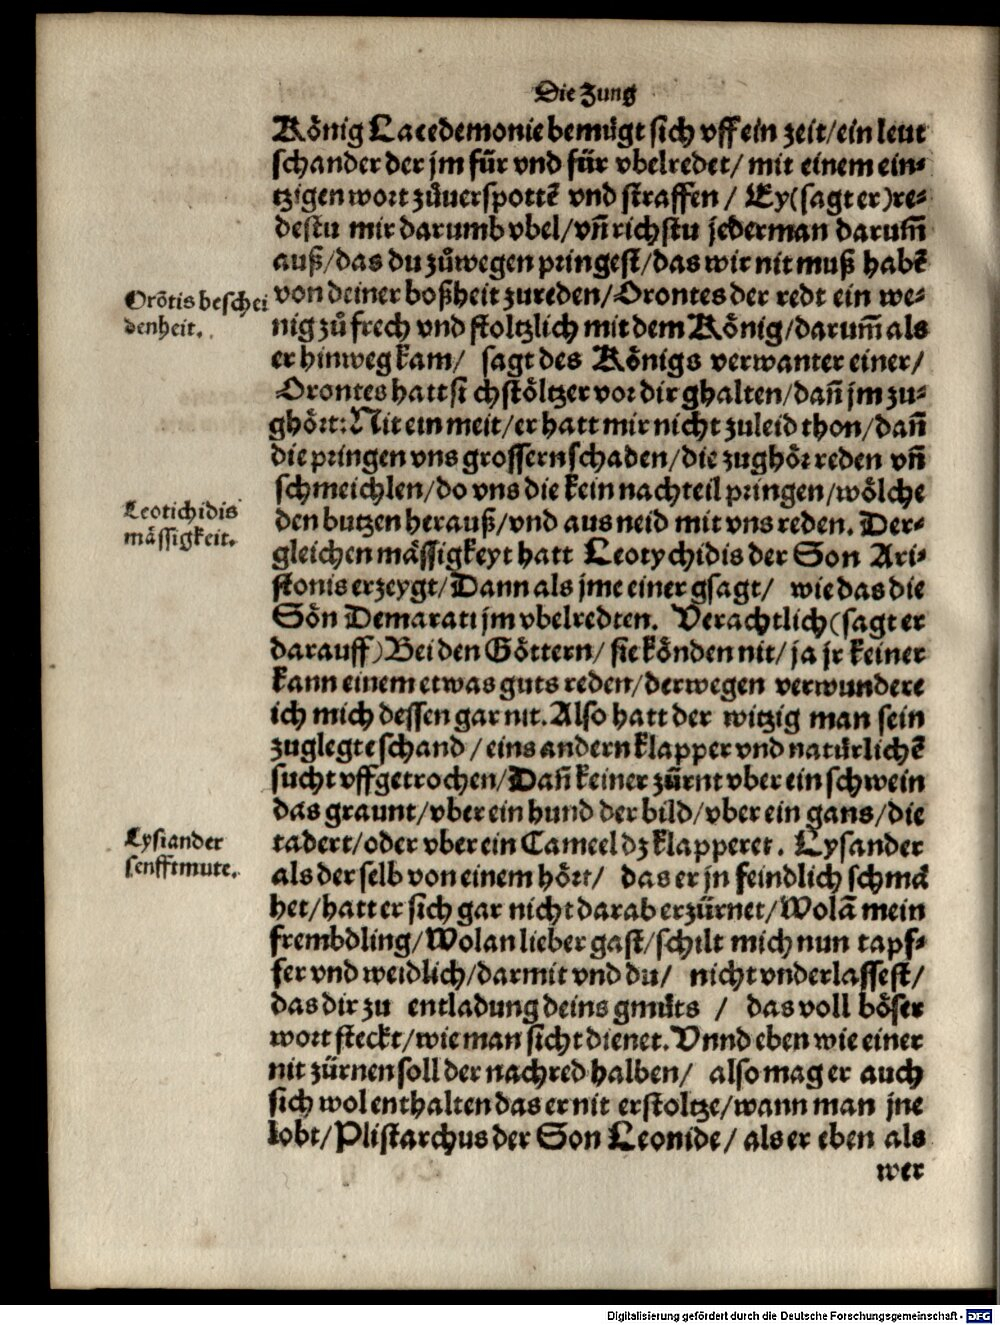 Die Zung
König Lacedemonie benügt sich vff ein zeit/ein leut
schander der jm für vnd für vbelredet/ mit einem ein⸗
tzigen wort zůuerspottẽ vnd straffen / Ey(sagt er)re⸗
destu mir darumb vbel/vñ richstu jederman darum̃
auß/das du zůwegen pringest/das wir nit muß habẽ
von deiner boßheit zureden/Orontes der redt ein we⸗
nig zů frech vnd stoltzlich mit dem König/darum̃ als
er hinweg kam/ sagt des Königs verwanter einer/
Orontes hatt si ch stöltzer vor dir ghalten/dañ jm zu⸗
ghört: Nit ein meit/er hatt mir nicht zuleid thon/dañ
die pringen vns grossern schaden/die zughör reden vñ
schmeichlen/do vns die kein nachteil pringen/wölche
den butzen herauß/vnd aus neid mit vns reden. Der⸗
gleichen mässigkeyt hatt Leotychidis der Son Ari⸗
stonis erzeygt/Dann als jme einer gsagt/ wie das die
Sön Demarati jm vbelredten. Verachtlich(sagt er
darauff)Bei den Göttern/ sie könden nit/ ja jr keiner
kann einem etwas guts reden/derwegen verwundere
ich mich dessen gar nit. Also hatt der witzig man sein
zuglegte schand /eins andern klapper vnd natürlichẽ
sucht vffgetrochen/Dañ keiner zürnt vber ein schwein
das graunt/vber ein hund der bild/vber ein gans/die
tadert/oder vber ein Cameel dz klapperet. Lysander
als der selb von einem hört/ das er jn feindlich schmä
het/hatt er sich gar nicht darab erzürnet/Wolã mein
frembdling/Wolan lieber gast/schilt mich nun tapf⸗
fer vnd weidlich/darmit vnd du/ nicht vnderlassest/
das dir zu entladung deins gmüts / das voll böser
wort steckt/wie man sicht dienet. Vnnd eben wie einer
nit zürnen soll der nachred halben/ also mag er auch
sich wol enthalten das er nit erstoltze/wann man jne
lobt/Plistarchus der Son Leonide/ als er eben als
wer
Orõtis beschei
denheit.
Leotichidis
mässigkeit.
Lysiander
senfftmute.
Digitalisierung gefördert durch die Deutsche Forschungsgemeinschaft - DFG